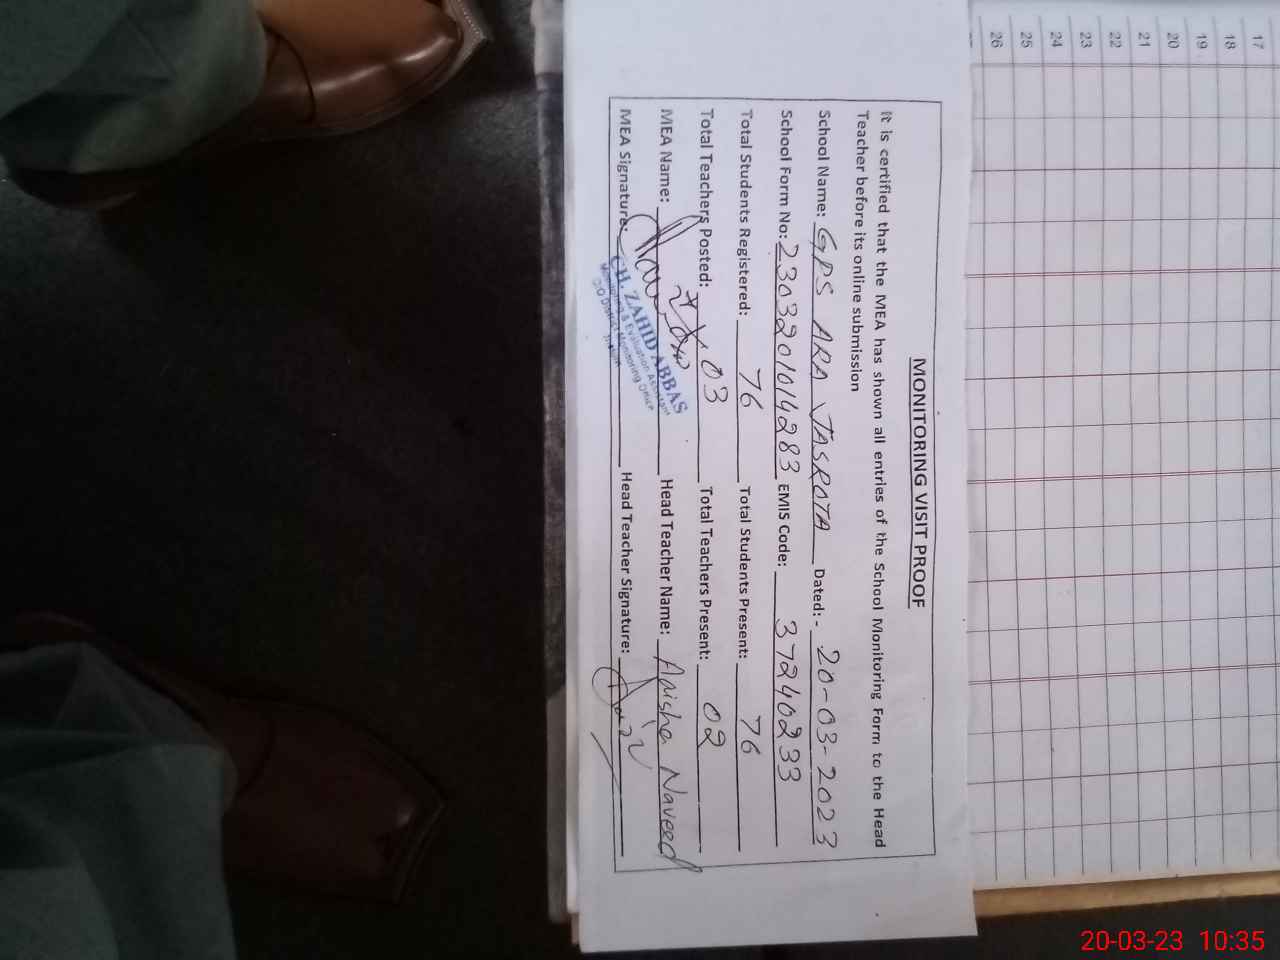 MONITORING VISIT PROOF
It is certified that the MEA has shown all entries of the School Monitoring Form to the Head
Teacher before its online submission
School Name: GPS ARA JASROTA Dated:- 20-03-2023
School Form No: 2303201014283 EMIS Code: 37240233
Total Students Registered: 76 Total Students Present: 76
Total Teachers Posted: 03 Total Teachers Present: 02
MEA Name: Head Teacher Name: Anisha Naveed
MEA Signature: Head Teacher Signature:
CH. ZAHID ABBAS
Monitoring & Evaluation Assistant
O/O District Monitoring Office
17
18
19
20
21
22
23
24
25
26
20-03-23 10:35